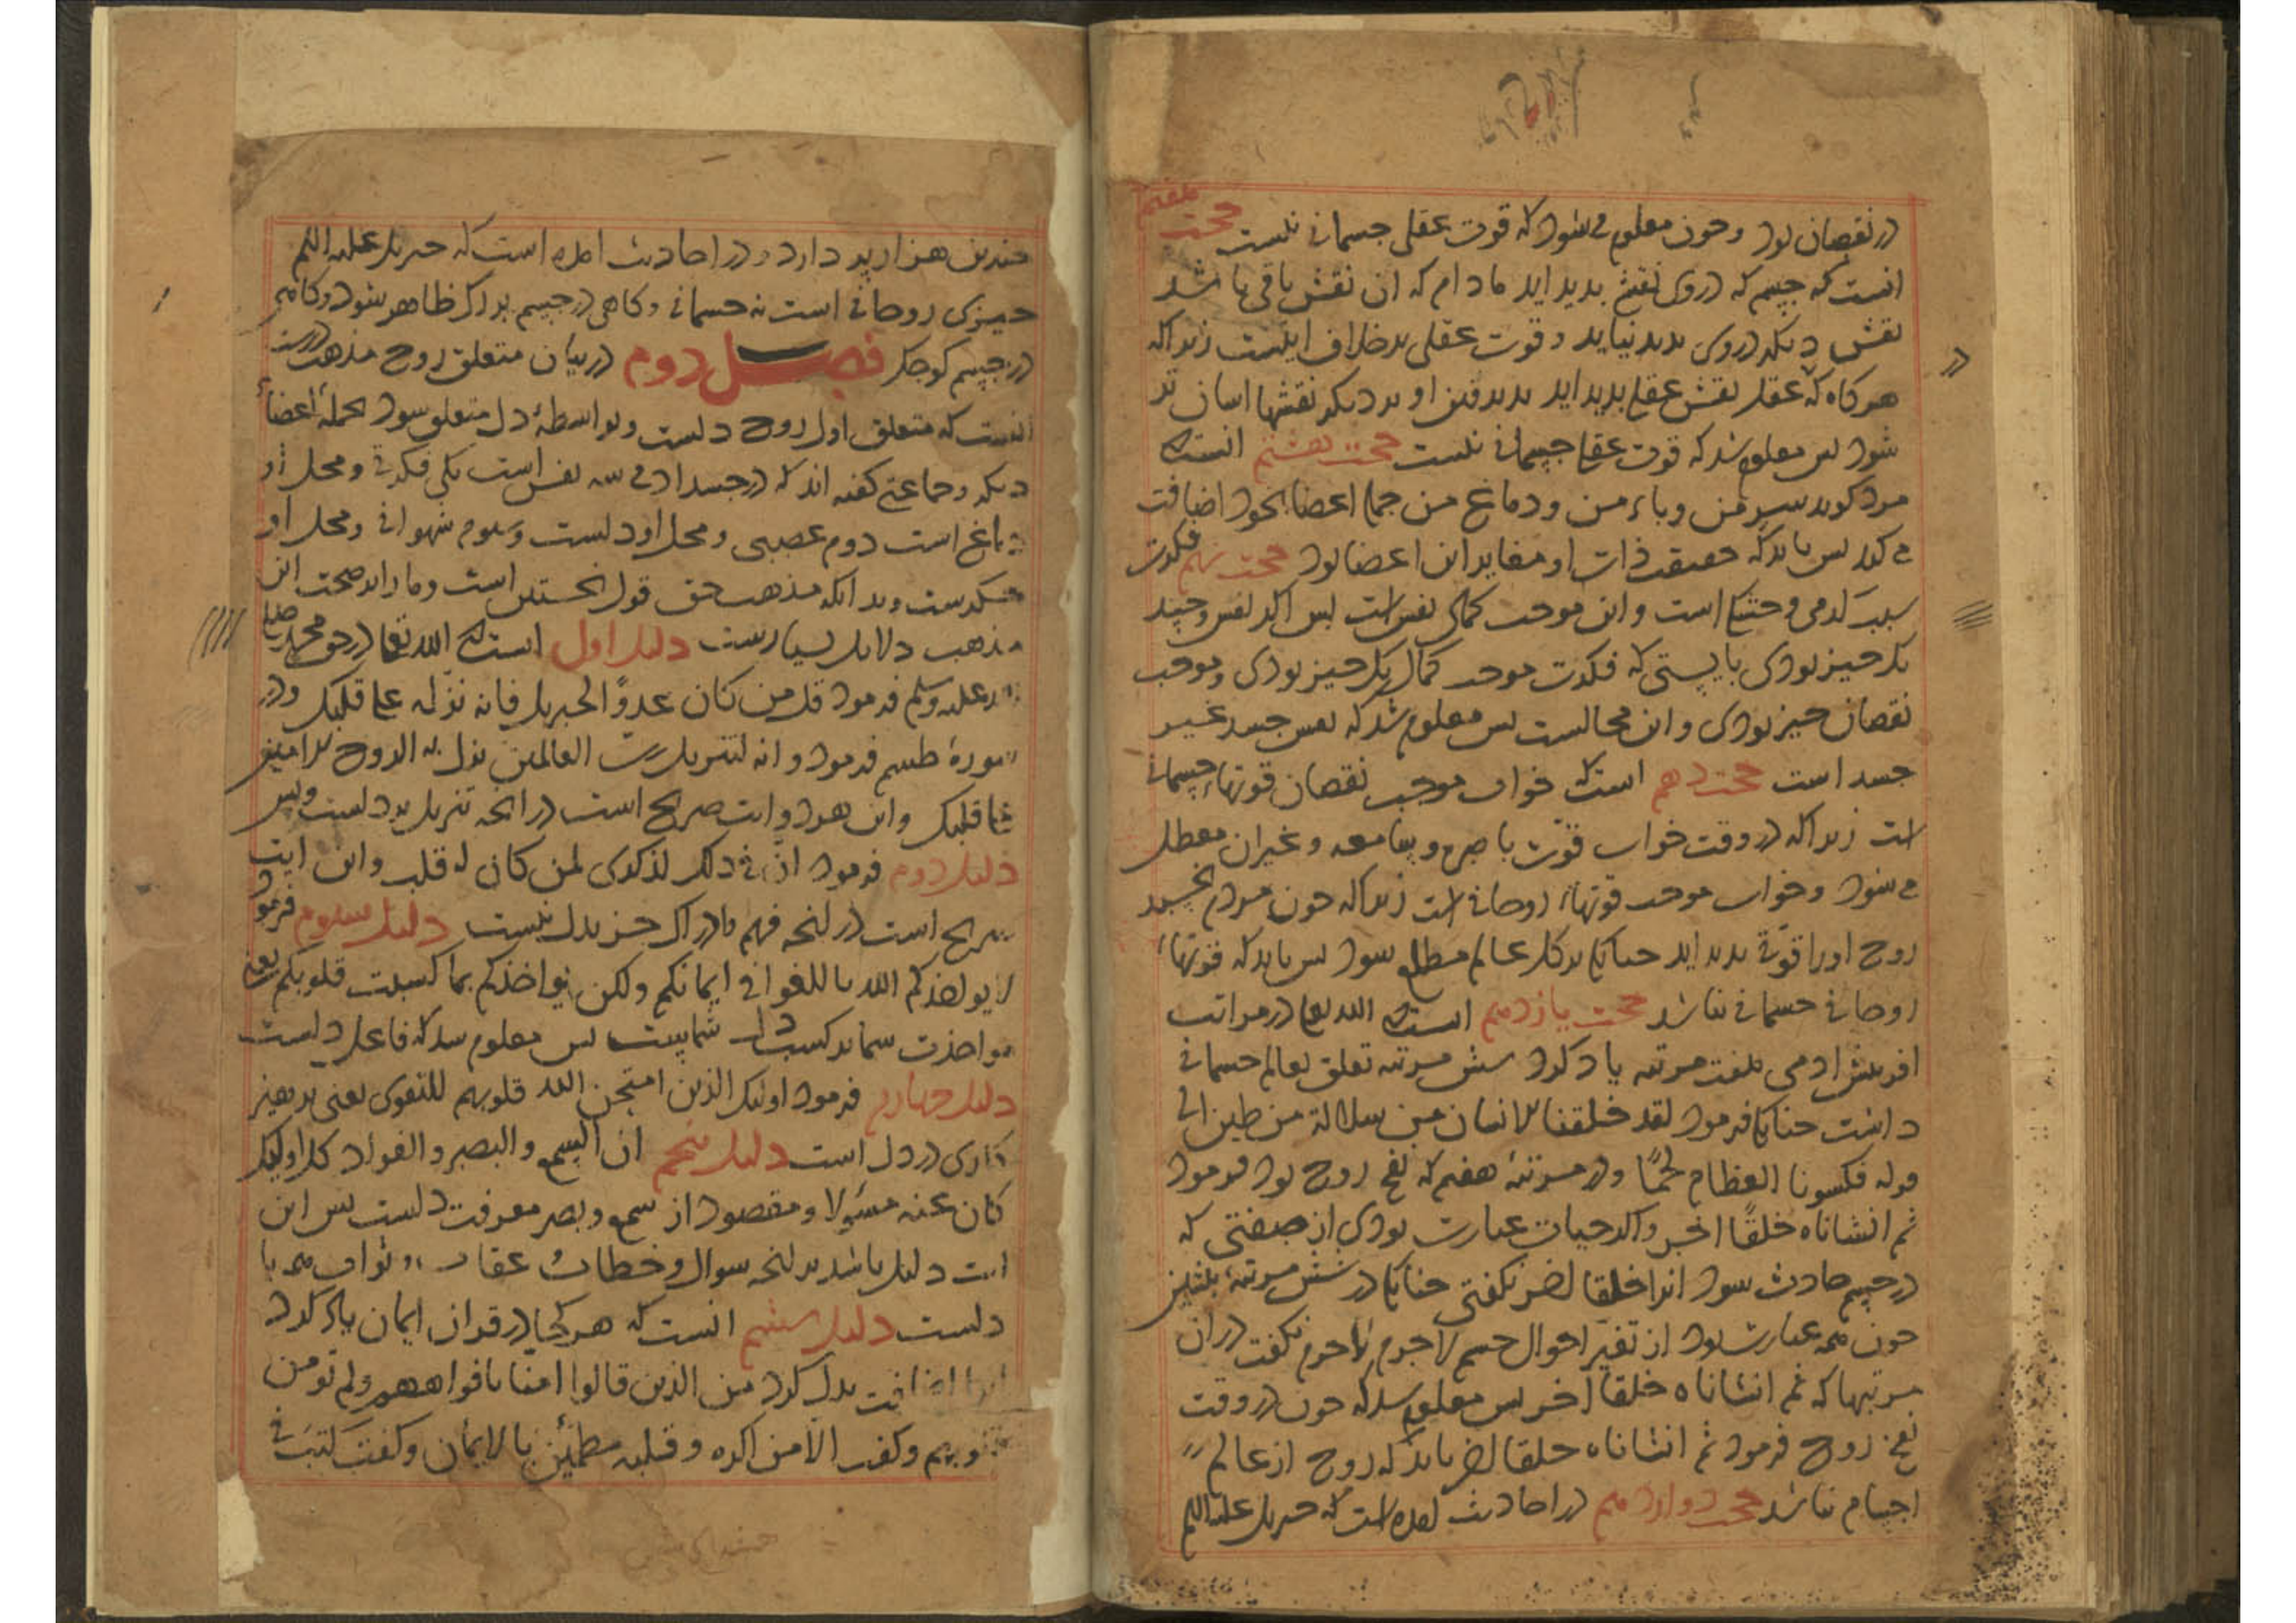 در نقصان بود و چون معلوم می شود که قوت عقلی جسمانی نیست حجت هفتم
انست که جسم که در وی نقش بدید اید مادام که ان نقش باقی باشد
نقش دیکر در وی بدید نیاید و قوت عقلی بر خلاف اینست زیراکه
هرکاه که عقل نقش عقلی بدید اید بدیرفتن او بر دیکر نقشها اسان تر
شود بس معلوم شد که قوت عقلی جسمانی نیست حجت هشتم انست که
مرد کوید سر من و باء من و دماغ من جمله اعضا بخود اضافت
می کند بس باید که حقیقت ذات او مغایر این اعضا بود حجت نهم فکرت
سبب است و این موجب کمال نفس است بس اکر نفس و جسد
یک چیز بودی بایستی که فکرت موجب کمال یک چیز بودی و موجب
نقصان چیز بودی و این محالست بس معلوم شد که نفس جسد غیر
جسد است حجت دهم انست که خواب موجب نقصان قوتهاء جسمانی
است زیراکه در وقت خواب قوت باصره و سامعه و غیر ان معطل
می شود و خواب موجب قوتهاء روحانی است زیراکه چون مردم بخسبد
روح او را قوتی بدید اید چنانکه بر کل عالم مطلع شود بس باید که قوتهاء
روحانی جسمانی نباشد حجت یازدهم انست که الله تعا در مراتب
افرینش ادمی هفت مرتبه یاد کرد شش مرتبه تعلق بعالم جسمانی
داشت چنانکه فرمود لقد خلقنا الانسان من سلالة من طین الی
قوله فکسونا العظام لحمًا و در مرتبهٔ هفتم که نفخ روح بود فرمود
ثم انشاناه خلقًا اخر و اکر حیات عبارت بودی از صفتی که
در جسم حادث شود انرا خلقا اخر نکفتی چنانکه در شش مرتبهٔ بیشین
چون همه عبارت بود از تغیر احوال جسم لاجرم نکفت در ان
مرتبها که ثم انشاناه خلقا اخر بس معلوم شد که چون در وقت
نفخ روح فرمود ثم انشاناه خلقا اخر باید که روح از عالم
اجسام نباشد حجت دوازدهم در احادیث امده است که جبریل علیه السلم
چندین هزار پر دارد و در احادیث امده است که جبریل علیه السلم
چیزی روحانی است نه جسمانی و کاهی در جسم بزرک ظاهر شود و کاهی
در جسم کوچک فصل دوم در بیان متعلق روح مذهب درست
انست که متعلق اول روح دلست و بواسطهٔ دل متعلق شود بجملهٔ اعضاء
دیکر و جماعتی کفته اند که در جسد ادمی سه نفس است یکی فکری و محل او
دماغ است دوم غضبی و محل او دلست و سوم شهوانی و محل او
جکرست و بدانکه مذهب حق قول نخستین است و ما را بر صحت این
مذهب دلایل بسیارست دلیل اول انست که الله تعا در حق محمد صلی
الله علیه وسلم فرمود قل من کان عدوًا لجبریل فانه نزله علی قلبک و در
سورهٔ طسم فرمود و انه لتنزیل رب العالمین نزل به الروح الامین
علی قلبک و این هر دو ایت صریح است در انچه تنزیل بر دلست و بس
دلیل دوم فرمود ان فی ذلک لذکری لمن کان له قلب و این ایت
صریح است در انچه فهم و ادراک جز بدل نیست دلیل سوم فرمود
لا یواخذکم الله باللغو فی ایمانکم ولکن یواخذکم بما کسبت قلوبکم یعنی
مواخذت شما بر کسب دل شماست بس معلوم شد که فاعل دلست
دلیل چهارم فرمود اولیک الذین امتحن الله قلوبهم للتقوی یعنی برهیز
کاری در دل است دلیل پنجم ان السمع والبصر والفواد کل اولیک
کان عنه مسٔولا و مقصود از سمع و بصر معرفت دلست بس این
ایت دلیل باشد بر انچه سوال و خطاب و عقاب و ثواب همه با
دلست دلیل ششم انست که هر کجا در قران ایمان یاد کرد
انرا اضافت بدل کرد من الذین قالوا امنا بافواههم ولم تومن
قلوبهم و کفت الا من اکره وقلبه مطمئن بالایمان و کفت کتب فی